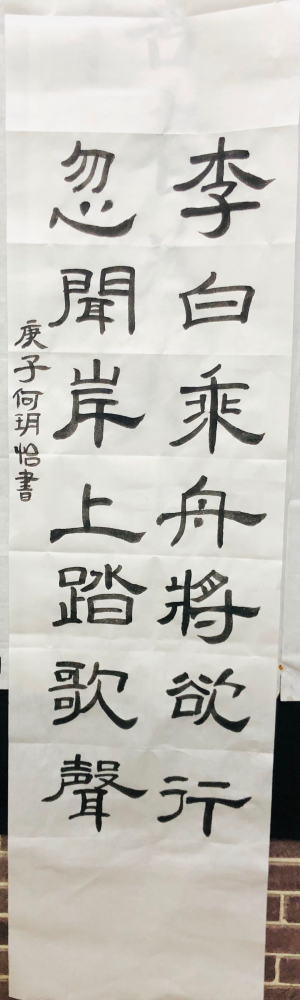 李白乘舟將欲行
忽聞岸上踏歌聲
庚子何玥怡書